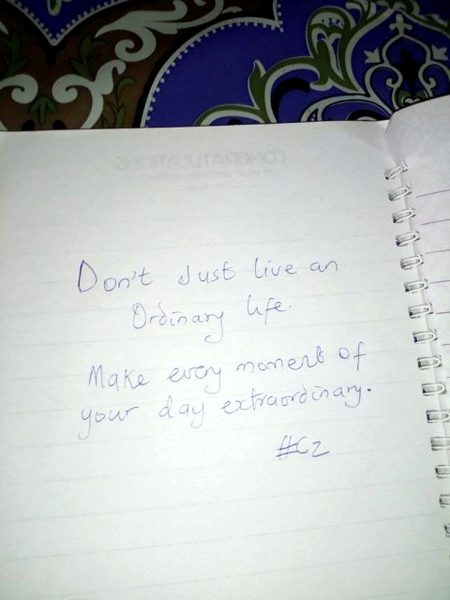 Don't Just live an
Ordinary life.
Make every moment of
your day extraordinary.
#Cz